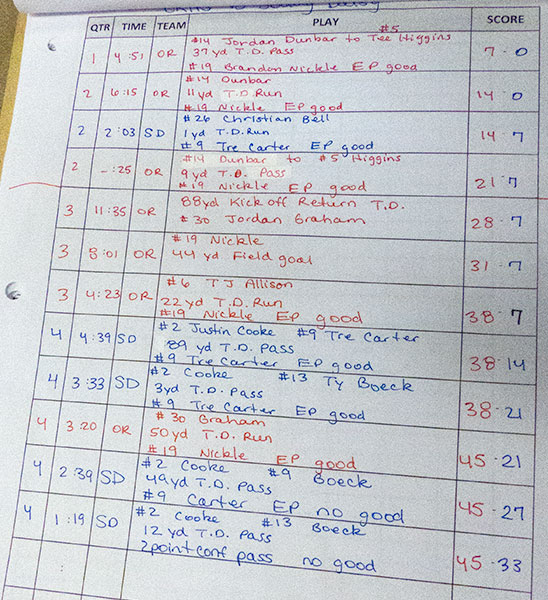 QTR TIME TEAM PLAY SCORE
#5
1 4:51 OR #14 Jordan Dunbar to Tee Higgins 7-0
37yd T.D. Pass
#19 Brandon Nickle EP good
2 6:15 OR #14 Dunbar 14-0
11yd T.D Run
#19 Nickle EP good
2 2:03 SD #26 Christian Bell 14-7
1yd T.D. Run
#9 Tre Carter EP good
2 -:25 OR #14 Dunbar to #5 Higgins 21-7
9yd T.D. Pass
#19 Nickle EP good
3 11:35 OR 88yd Kick off Return T.D. 28-7
#30 Jordan Graham
3 8:01 OR #19 Nickle 31-7
44 yd Field goal
3 4:23 OR #6 TJ Allison 38-7
22yd T.D. Run
#19 Nickle EP good
4 4:39 SD #2 Justin Cooke #9 Tre Carter 38-14
89 yd T.D. Pass
#9 Tre Carter EP good
4 3:33 SD #2 Cooke #13 Ty Boeck 38-21
3yd T.D. Pass
#9 Tre Carter EP good
4 3:20 OR #30 Graham 45-21
50yd T.D. Run
#19 Nickle EP good
4 2:39 SD #2 Cooke #9 Boeck 45-27
49yd T.D. Pass
#9 Carter EP no good
4 1:19 SD #2 Cooke #13 Boeck 45-33
12yd T.D. Pass
2point conf pass no good